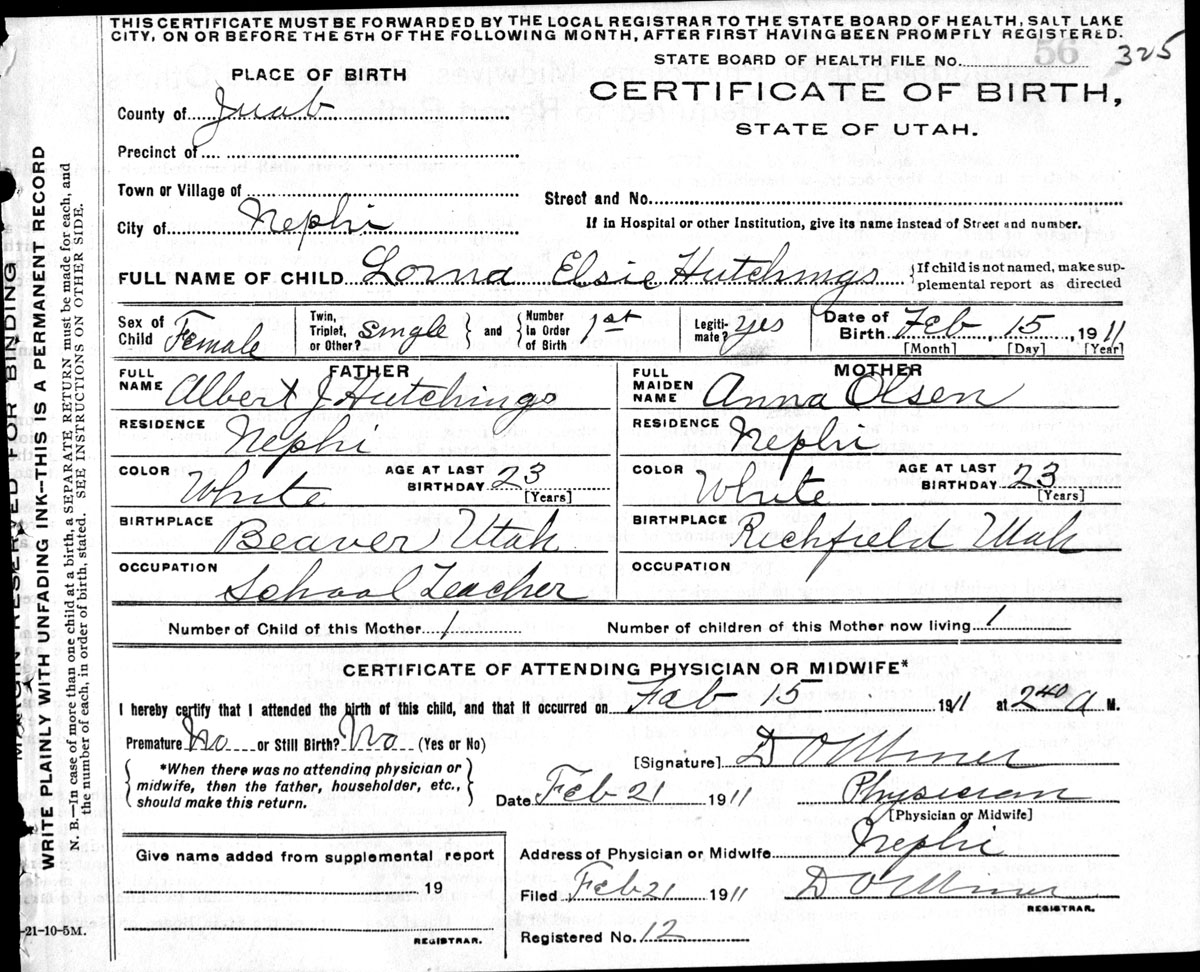 THIS CERTIFICATE MUST BE FORWARDED BY THE LOCAL REGISTRAR TO THE STATE BOARD OF HEALTH, SALT LAKE
CITY, ON OR BEFORE THE 5TH OF THE FOLLOWING MONTH, AFTER FIRST HAVING BEEN PROMPTLY REGISTERED.
STATE BOARD OF HEALTH FILE No. 56 325
PLACE OF BIRTH
CERTIFICATE OF BIRTH,
STATE OF UTAH.
County of Juab
Precinct of
Town or Village of
Street and No.
City of Nephi
If in Hospital or other Institution, give its name instead of Street and number.
FULL NAME OF CHILD Lorna Elsie Hutchings {If child is not named, make sup-
plemental report as directed
Sex of Child Female Twin, Triplet, or Other? Single } and { Number In Order of Birth 1st Legiti- mate? yes Date of Birth Feb, 15, 1911
[Month] [Day] [Year]
FATHER
MOTHER
FULL NAME Albert J Hutchings
FULL MAIDEN NAME Anna Olsen
RESIDENCE Nephi
RESIDENCE Nephi
COLOR White AGE AT LAST BIRTHDAY 23 [Years]
COLOR White AGE AT LAST BIRTHDAY 23 [Years]
BIRTHPLACE Beaver Utah
BIRTHPLACE Richfield Utah
OCCUPATION School Teacher
OCCUPATION
Number of Child of this Mother 1 Number of children of this Mother now living 1
CERTIFICATE OF ATTENDING PHYSICIAN OR MIDWIFE*
I hereby certify that I attended the birth of this child, and that it occurred on Feb 15 1911 at 2 40 A M.
Premature No or Still Birth? No (Yes or No)
[Signature] D O Miner
*When there was no attending physician or
midwife, then the father, householder, etc.,
should make this return.
Date Feb 21 1911 Physician
[Physician or Midwife]
Give name added from supplemental report
19
REGISTRAR.
Address of Physician or Midwife Nephi
Filed Feb 21 1911 D O Miner
REGISTRAR.
Registered No. 12
-21-10-5M.
MARGIN RESERVED FOR BINDING
WRITE PLAINLY WITH UNFADING INK--THIS IS A PERMANENT RECORD
N. B.—In case of more than one child at a birth, a SEPARATE RETURN must be made for each, and
the number of each, in order of birth, stated. SEE INSTRUCTIONS ON OTHER SIDE.